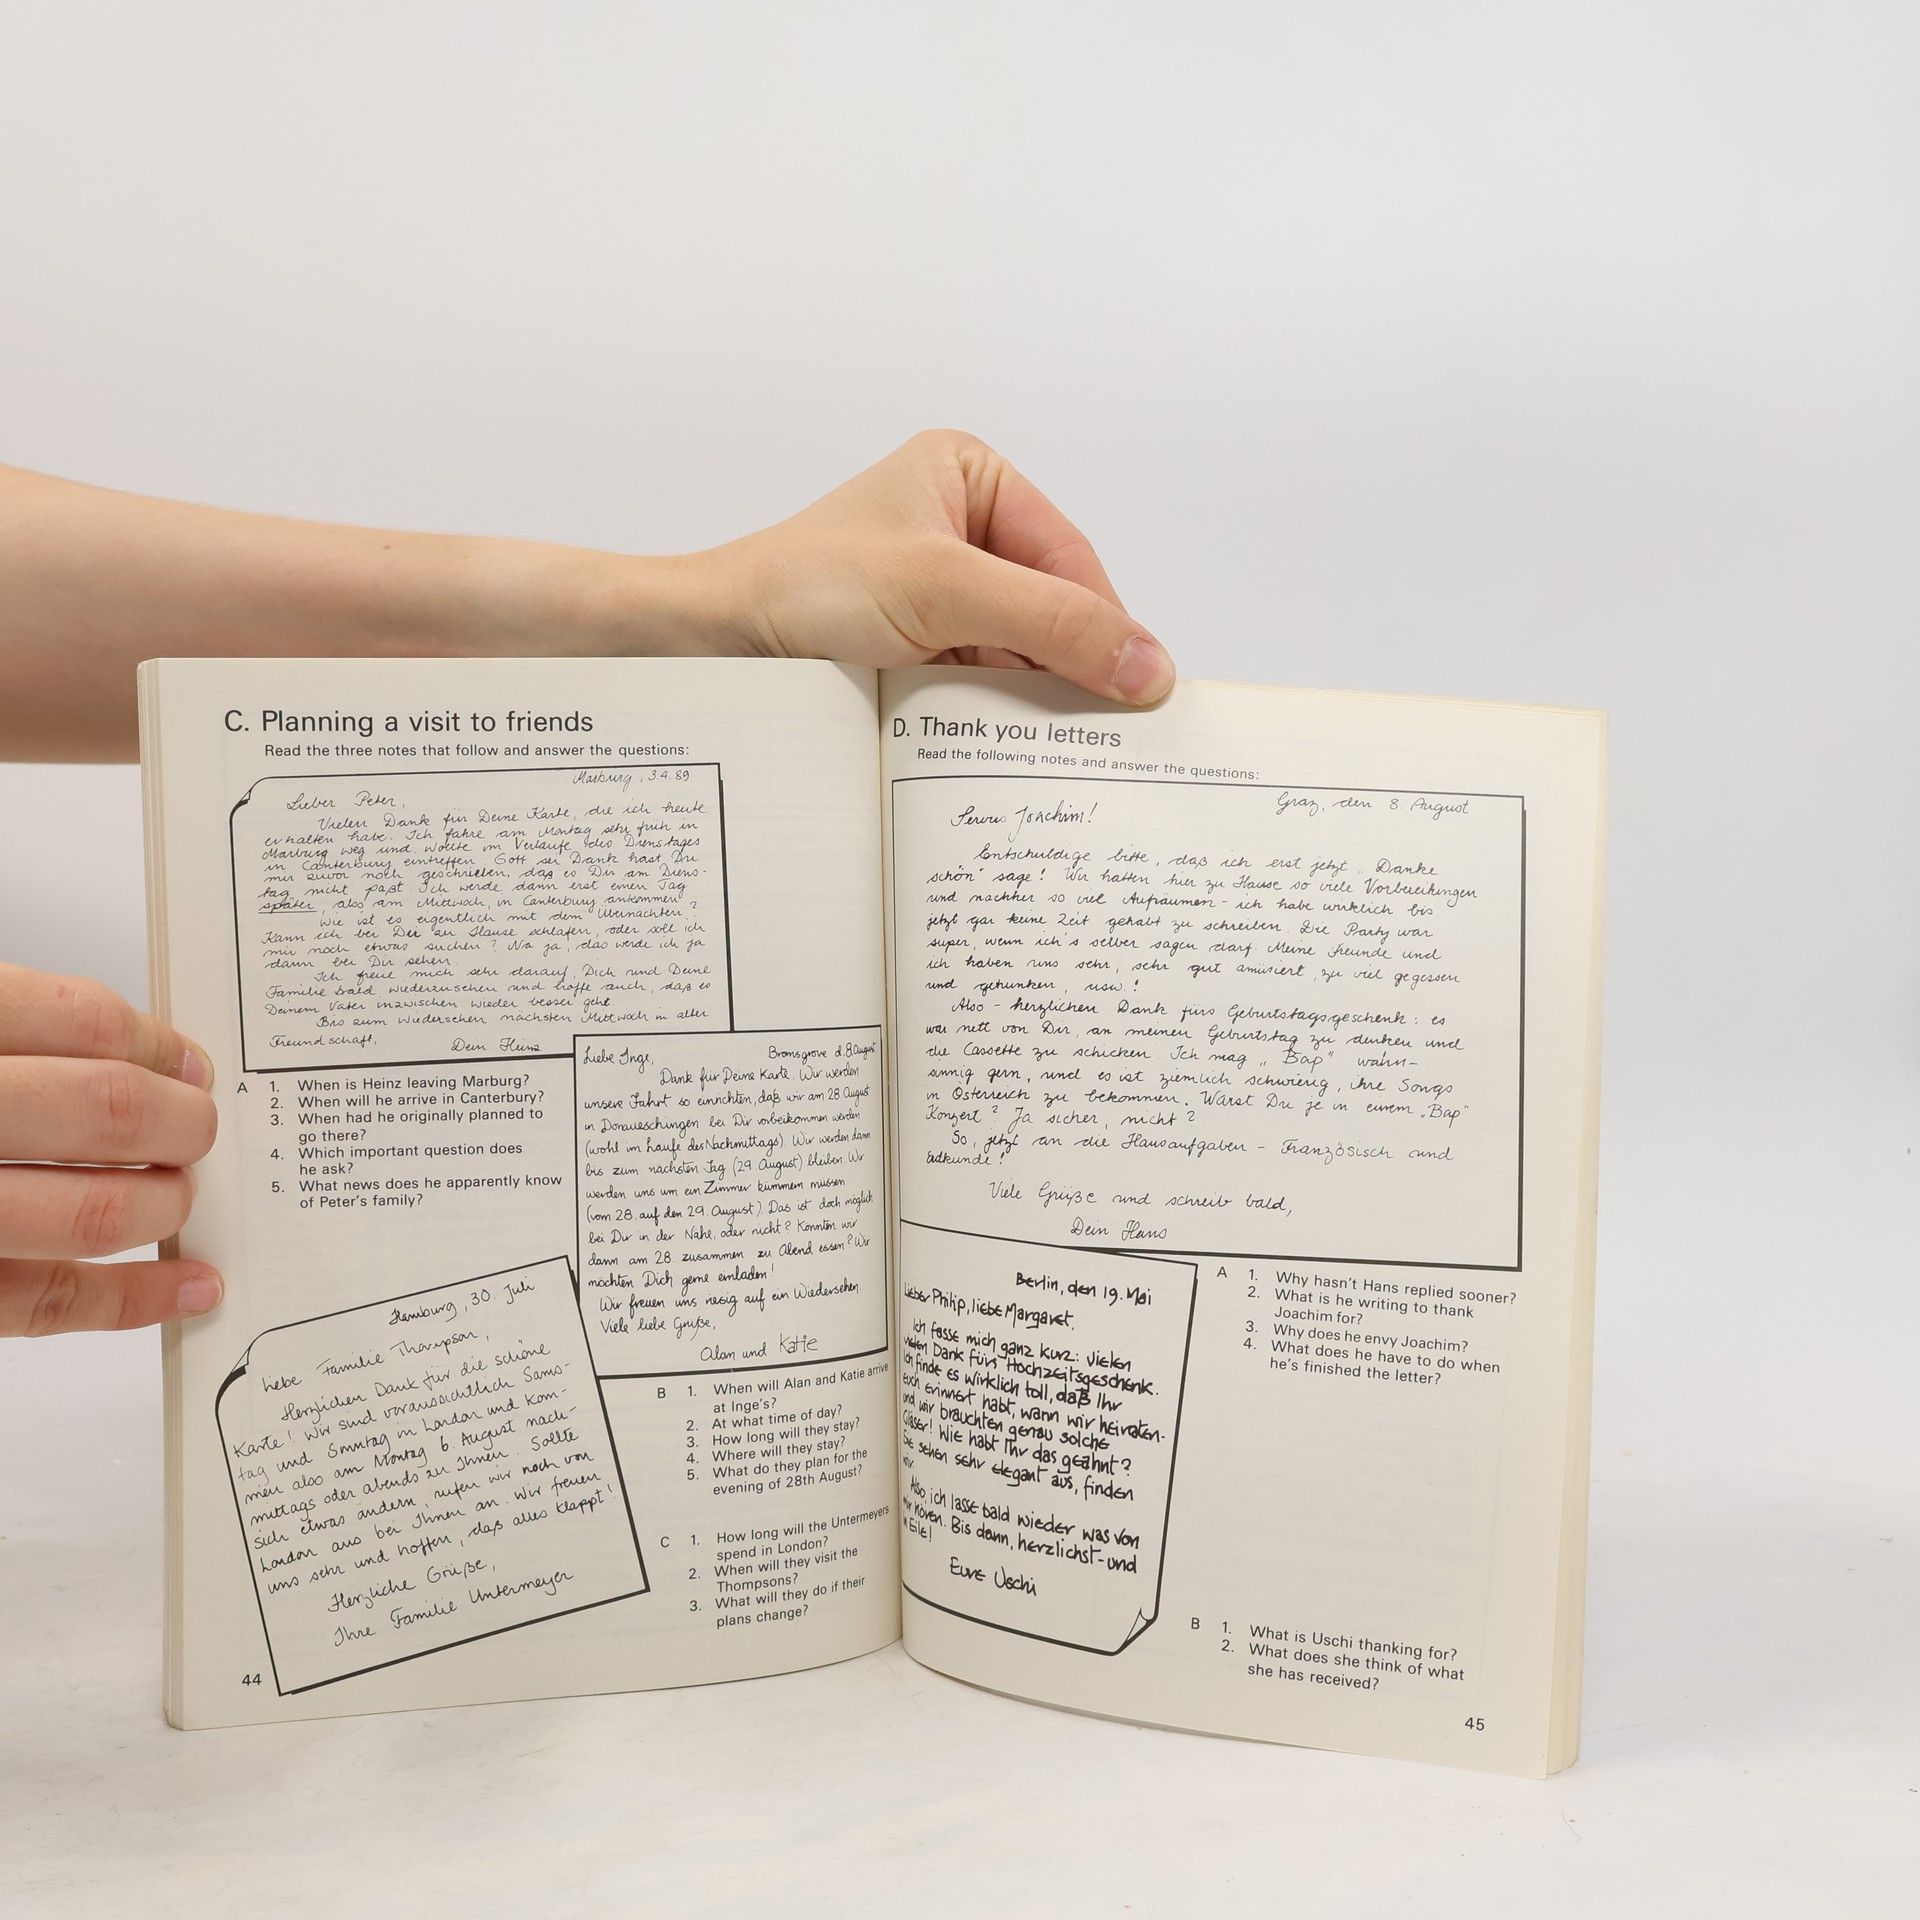 C. Planning a visit to friends
Read the three notes that follow and answer the questions:
Marburg, 3.4.89
Lieber Peter,
Vielen Dank für Deine Karte, die ich heute
erhalten habe. Ich fahre am Montag sehr früh in
Marburg weg und wollte im Verlaufe des Dienstages
in Canterbury eintreffen. Gott sei Dank hast Du
mir zuvor noch geschrieben, daß es Dir am Diens-
tag nicht paßt. Ich werde dann erst einen Tag
später, also am Mittwoch, in Canterbury ankommen.
Wie ist es eigentlich mit dem Übernachten?
Kann ich bei Dir zu Hause schlafen, oder soll ich
mir noch etwas suchen? Na ja, das werde ich ja
dann bei Dir sehen.
Ich freue mich sehr darauf, Dich und Deine
Familie bald wiederzusehen und hoffe auch, daß es
Deinem Vater inzwischen wieder besser geht.
Bis zum Wiedersehen nächsten Mittwoch in aller
Freundschaft,
Dein Heinz
A 1. When is Heinz leaving Marburg?
2. When will he arrive in Canterbury?
3. When had he originally planned to
go there?
4. Which important question does
he ask?
5. What news does he apparently know
of Peter's family?
Bromsgrove d. 8. August
Liebe Inge,
Dank für Deine Karte. Wir werden
unsere Fahrt so einrichten, daß wir am 28. August
in Donaueschingen bei Dir vorbeikommen werden
(wohl im Laufe des Nachmittags). Wir werden dann
bis zum nächsten Tag (29. August) bleiben. Wir
werden uns um ein Zimmer kümmern müssen
(vom 28. auf den 29. August). Das ist doch möglich
bei Dir in der Nähe, oder nicht? Könnten wir
dann am 28. zusammen zu Abend essen? Wir
möchten Dich gerne einladen!
Wir freuen uns riesig auf ein Wiedersehen.
Viele liebe Grüße,
Alan und Katie
B 1. When will Alan and Katie arrive
at Inge's?
2. At what time of day?
3. How long will they stay?
4. Where will they stay?
5. What do they plan for the
evening of 28th August?
Hamburg, 30. Juli
Liebe Familie Thompson,
Herzlichen Dank für die schöne
Karte! Wir sind voraussichtlich Sams-
tag und Sonntag in London und kom-
men also am Montag 6. August nach-
mittags oder abends zu Ihnen. Sollte
sich etwas ändern, rufen wir noch von
London aus bei Ihnen an. Wir freuen
uns sehr und hoffen, daß alles klappt!
Herzliche Grüße,
Ihre Familie Untermeyer
C 1. How long will the Untermeyers
spend in London?
2. When will they visit the
Thompsons?
3. What will they do if their
plans change?
44
D. Thank you letters
Read the following notes and answer the questions:
Graz, den 8. August
Servus Joachim!
Entschuldige bitte, daß ich erst jetzt „Danke
schön" sage! Wir hatten hier zu Hause so viele Vorbereitungen
und nachher so viel Aufräumen - ich habe wirklich bis
jetzt gar keine Zeit gehabt zu schreiben. Die Party war
super, wenn ich's selber sagen darf. Meine Freunde und
ich haben uns sehr, sehr gut amüsiert, zu viel gegessen
und getrunken, usw.!
Also - herzlichen Dank fürs Geburtstagsgeschenk: es
war nett von Dir, an meinen Geburtstag zu denken und
die Cassette zu schicken. Ich mag „Bap" wahn-
sinnig gern, und es ist ziemlich schwierig, ihre Songs
in Österreich zu bekommen. Warst Du je in einem „Bap"
Konzert? Ja sicher, nicht?
So, jetzt an die Hausaufgaben - Französisch und
Erdkunde!
Viele Grüße und schreib bald,
Dein Hans
A 1. Why hasn't Hans replied sooner?
2. What is he writing to thank
Joachim for?
3. Why does he envy Joachim?
4. What does he have to do when
he's finished the letter?
Berlin, den 19. Mai
Lieber Philip, liebe Margaret.
Ich fasse mich ganz kurz: vielen
vielen Dank fürs Hochzeitsgeschenk.
Ich finde es wirklich toll, daß Ihr
Euch erinnert habt, wann wir heiraten-
und wir brauchten genau solche
Gläser! Wie habt Ihr das geahnt?
Sie sehen sehr elegant aus, finden
wir.
Also, ich lasse bald wieder was von
mir hören. Bis dann, herzlichst-und
in Eile!
Eure Uschi
B 1. What is Uschi thanking for?
2. What does she think of what
she has received?
45